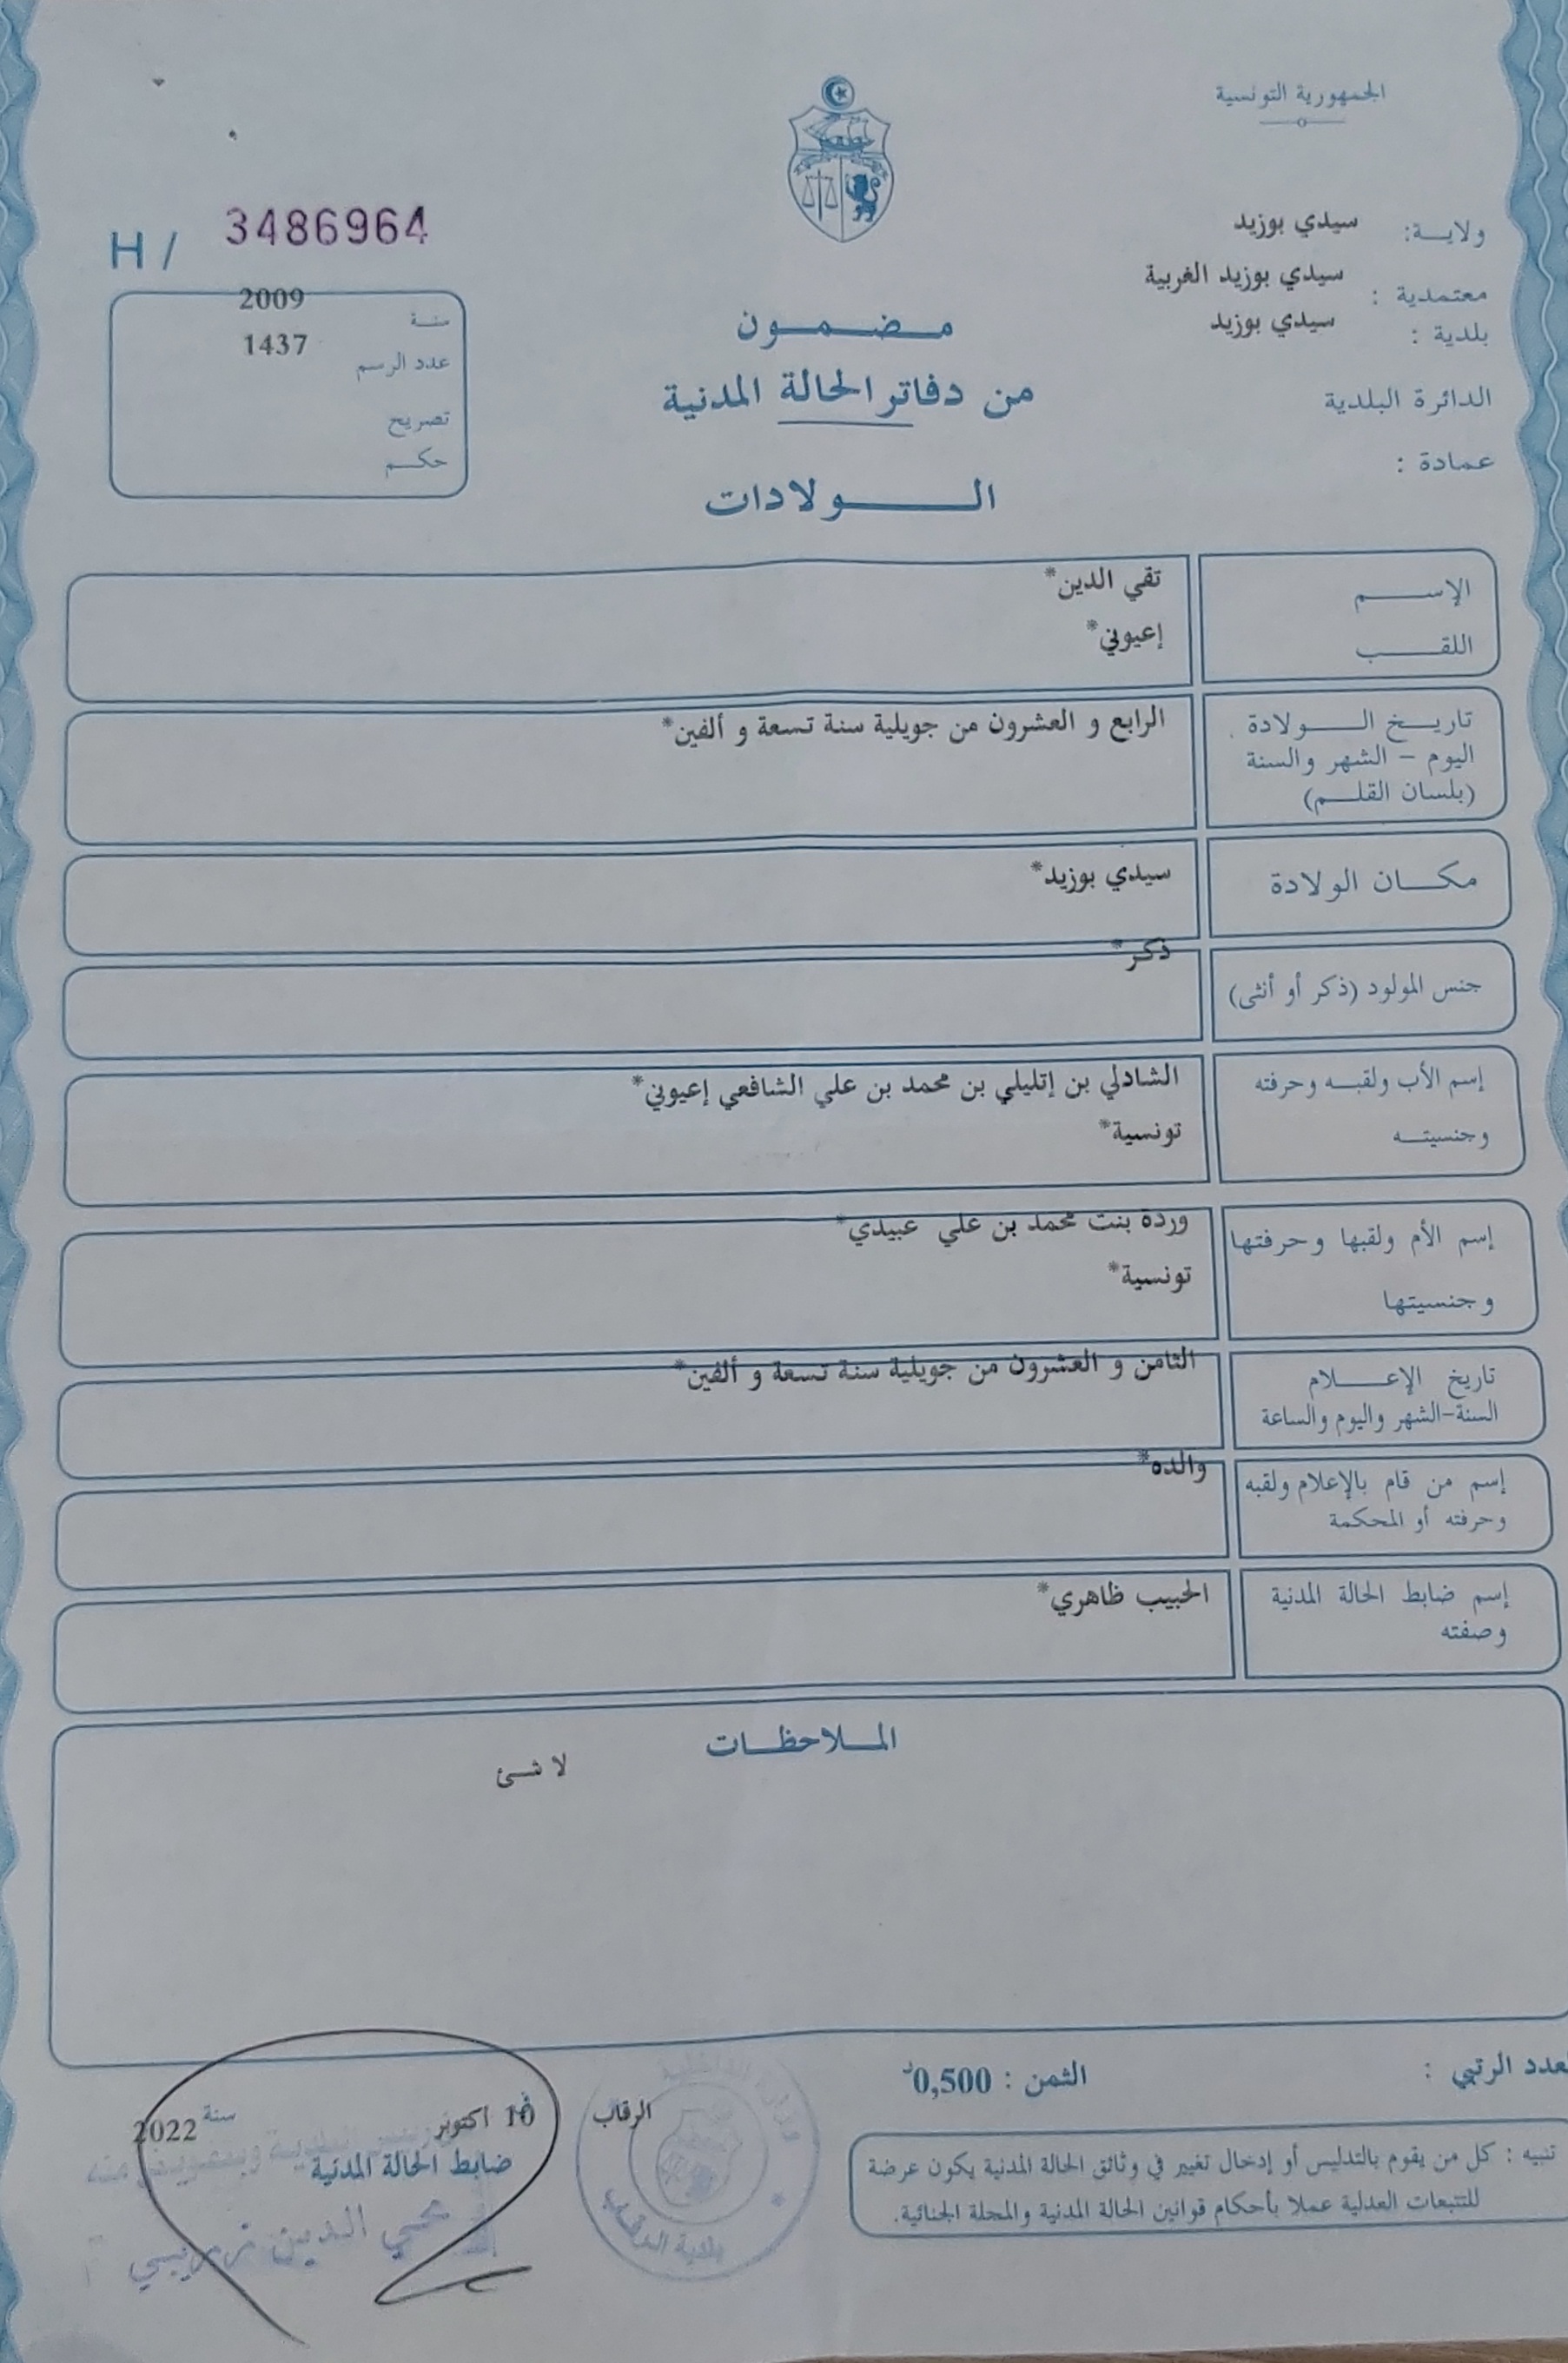 الجمهورية التونسية
ولايـــة: سيدي بوزيد
معتمدية : سيدي بوزيد الغربية
بلدية : سيدي بوزيد
الدائرة البلدية
عمادة :
مـــضـــمـــون
من دفاتر الحالة المدنية
الـــــولادات
H / 3486964
سنـة 2009
عدد الرسم 1437
تصريح
حكـــم
الإســـــم تقي الدين*
اللقـــــب إعيوني*
تاريـــخ الـــــولادة الرابع و العشرون من جويلية سنة تسعة و ألفين*
اليوم – الشهر والسنة
(بلسان القلـــم)
مكـــان الولادة سيدي بوزيد*
جنس المولود (ذكر أو أنثى) ذكر*
إسم الأب ولقبـــه وحرفته الشادلي بن إتليلي بن محمد بن علي الشافعي إعيوني*
وجنسيتـــه تونسية*
إسم الأم ولقبها وحرفتها وردة بنت محمد بن علي عبيدي*
وجنسيتها تونسية*
تاريخ الإعـــــلام الثامن و العشرون من جويلية سنة تسعة و ألفين*
السنة-الشهر واليوم والساعة
إسم من قام بالإعلام ولقبه والده*
وحرفته أو المحكمة
إسم ضابط الحالة المدنية الحبيب ظاهري*
وصفته
المـــلاحظـــات
لا شـئ
العدد الرتبي :
الثمن : 0,500د
تنبيه : كل من يقوم بالتدليس أو إدخال تغيير في وثائق الحالة المدنية يكون عرضة
للتتبعات العدلية عملا بأحكام قوانين الحالة المدنية والمجلة الجنائية.
الرقاب
10 اكتوبر سنة 2022
ضابط الحالة المدنية
بلدية الرقاب
محي الدين